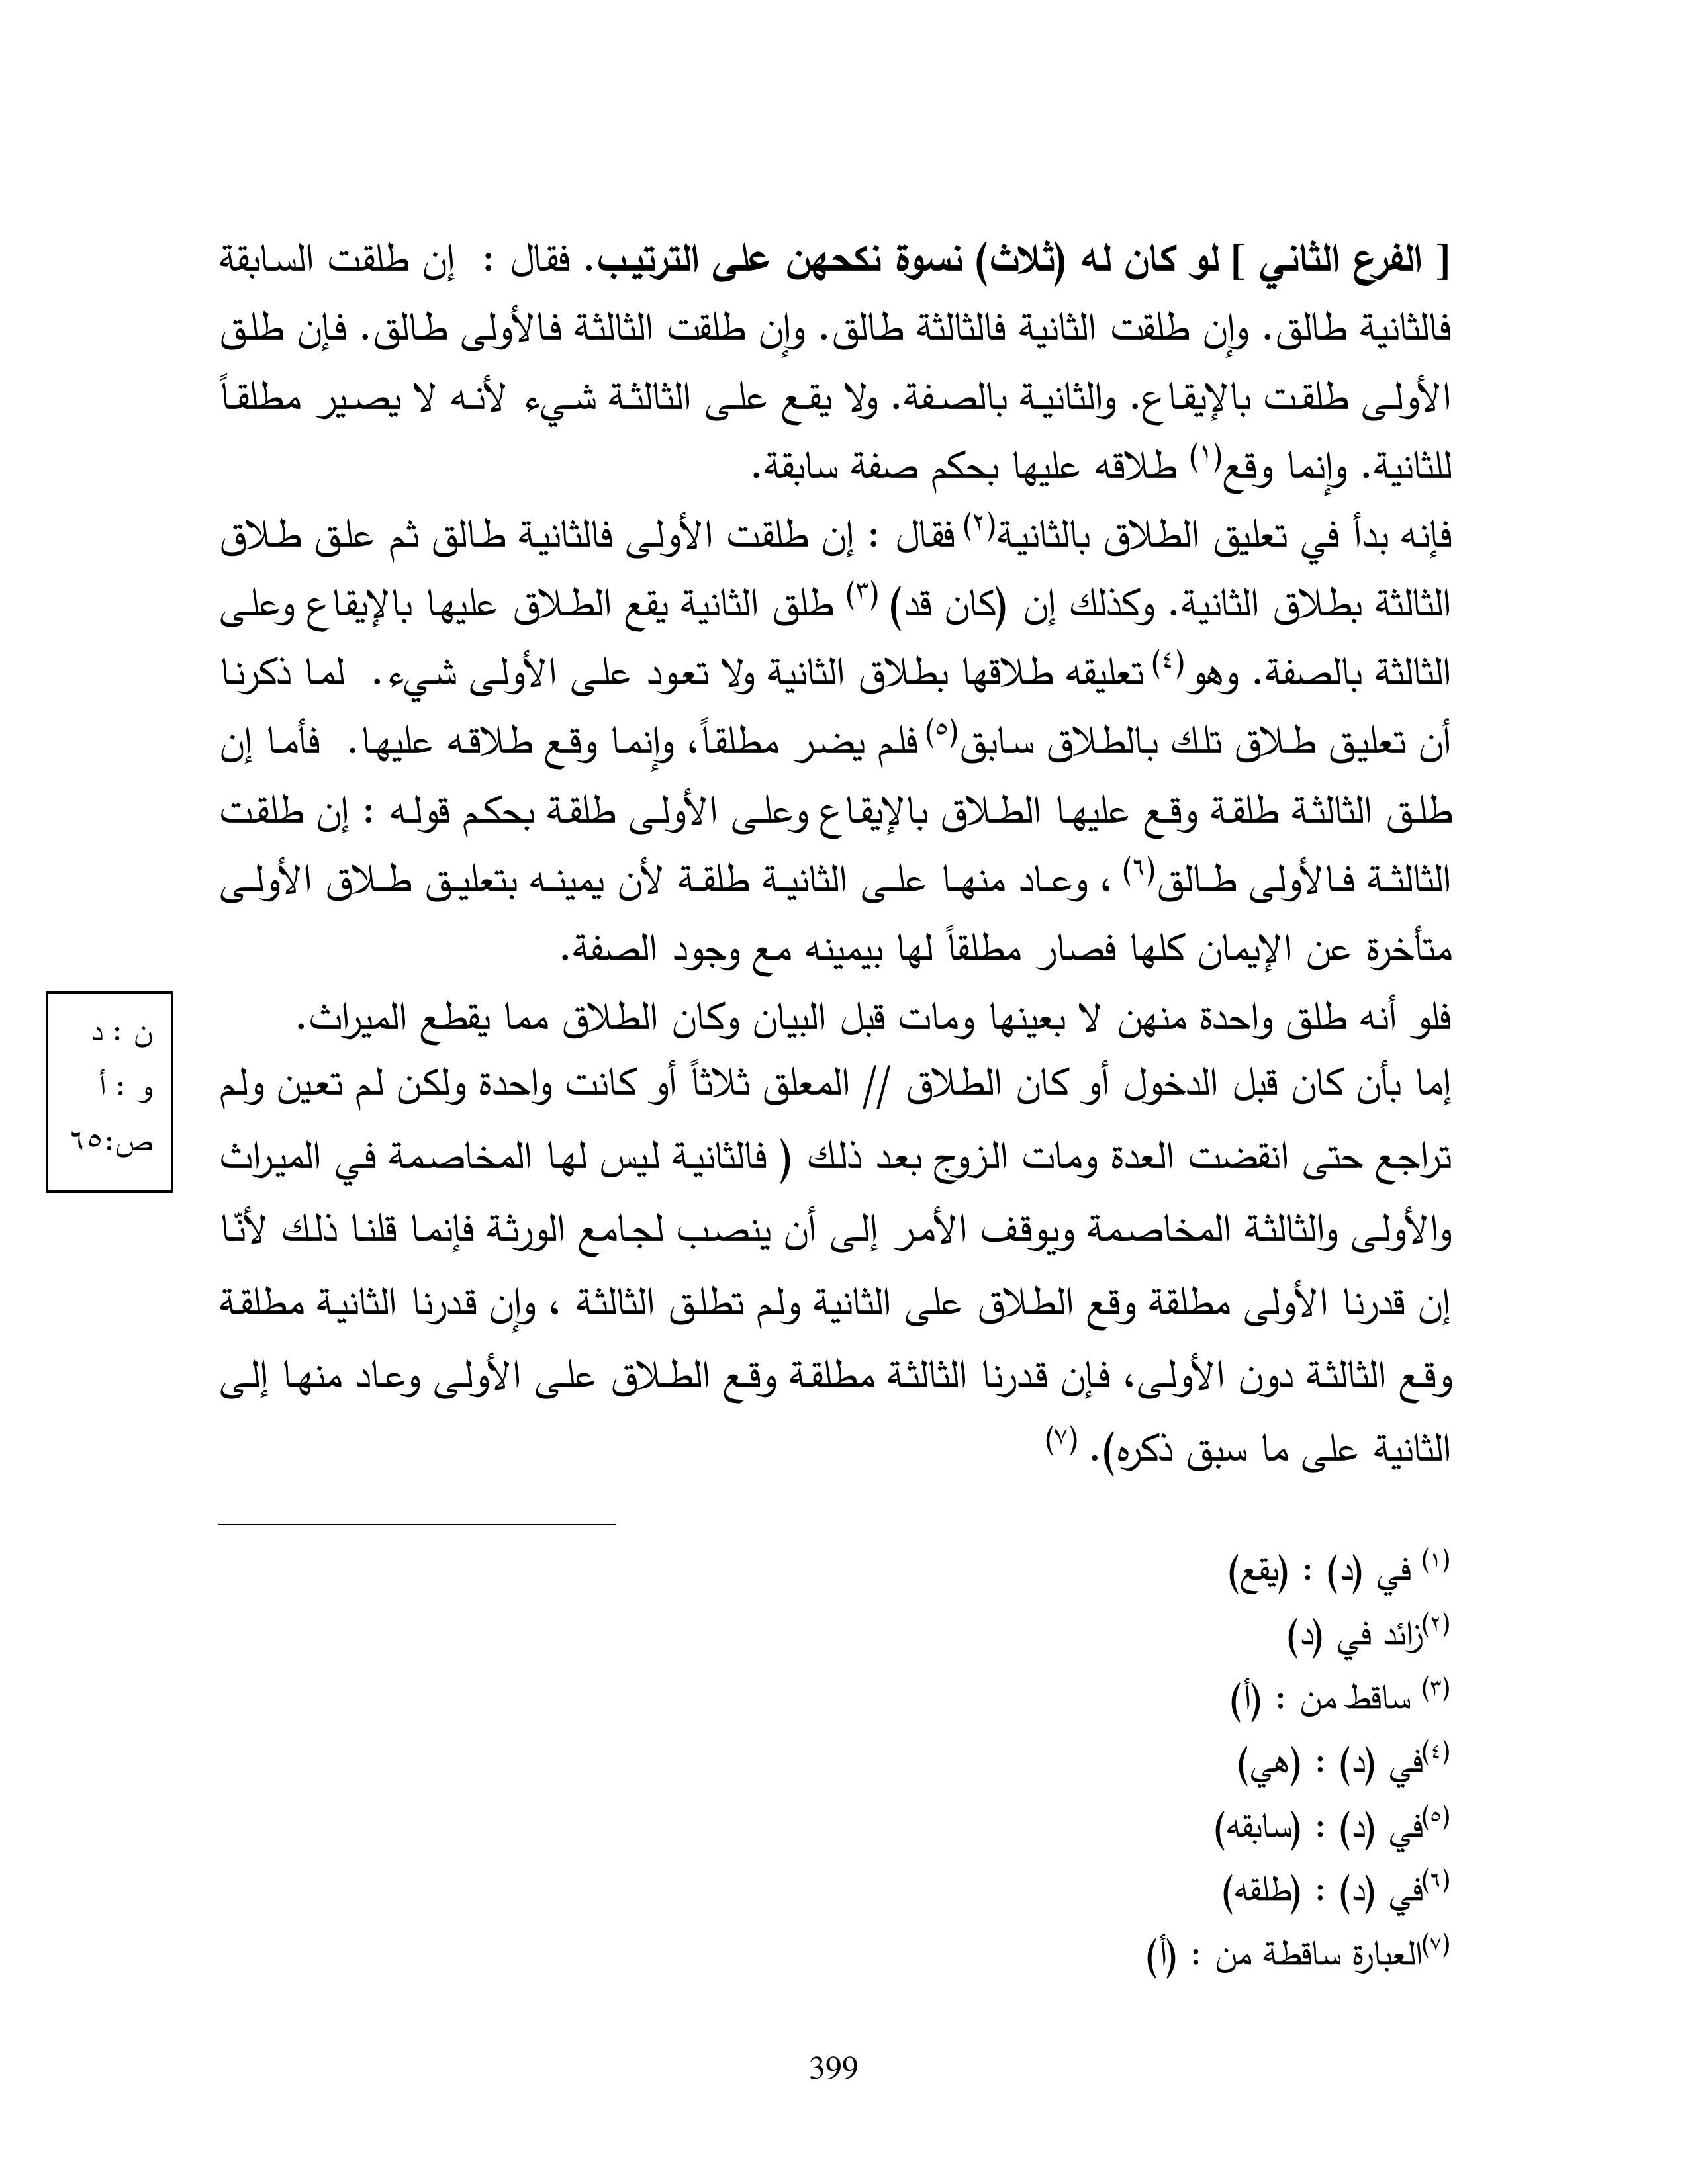 [ الفرع الثاني ] لو كان له (ثلاث) نسوة نكحهن على الترتيب. فقال : إن طلقت السابقة
فالثانية طالق. وإن طلقت الثانية فالثالثة طالق. وإن طلقت الثالثة فالأولى طالق. فإن طلق
الأولى طلقت بالإيقاع. والثانية بالصفة. ولا يقع على الثالثة شيء لأنه لا يصير مطلقاً
للثانية. وإنما وقع(١) طلاقه عليها بحكم صفة سابقة.
فإنه بدأ في تعليق الطلاق بالثانية(٢) فقال : إن طلقت الأولى فالثانية طالق ثم علق طلاق
الثالثة بطلاق الثانية. وكذلك إن (كان قد) (٣) طلق الثانية يقع الطلاق عليها بالإيقاع وعلى
الثالثة بالصفة. وهو(٤) تعليقه طلاقها بطلاق الثانية ولا تعود على الأولى شيء. لما ذكرنا
أن تعليق طلاق تلك بالطلاق سابق(٥) فلم يضر مطلقاً، وإنما وقع طلاقه عليها. فأما إن
طلق الثالثة طلقة وقع عليها الطلاق بالإيقاع وعلى الأولى طلقة بحكم قوله : إن طلقت
الثالثة فالأولى طالق(٦) ، وعاد منها على الثانية طلقة لأن يمينه بتعليق طلاق الأولى
متأخرة عن الإيمان كلها فصار مطلقاً لها بيمينه مع وجود الصفة.
فلو أنه طلق واحدة منهن لا بعينها ومات قبل البيان وكان الطلاق مما يقطع الميراث.
إما بأن كان قبل الدخول أو كان الطلاق // المعلق ثلاثاً أو كانت واحدة ولكن لم تعين ولم
تراجع حتى انقضت العدة ومات الزوج بعد ذلك ( فالثانية ليس لها المخاصمة في الميراث
والأولى والثالثة المخاصمة ويوقف الأمر إلى أن ينصب لجامع الورثة فإنما قلنا ذلك لأنّا
إن قدرنا الأولى مطلقة وقع الطلاق على الثانية ولم تطلق الثالثة ، وإن قدرنا الثانية مطلقة
وقع الثالثة دون الأولى، فإن قدرنا الثالثة مطلقة وقع الطلاق على الأولى وعاد منها إلى
الثانية على ما سبق ذكره). (٧)
ن : د
و : أ
ص:٦٥
(١) في (د) : (يقع)
(٢)زائد في (د)
(٣) ساقط من : (أ)
(٤)في (د) : (هي)
(٥)في (د) : (سابقه)
(٦)في (د) : (طلقه)
(٧)العبارة ساقطة من : (أ)
399